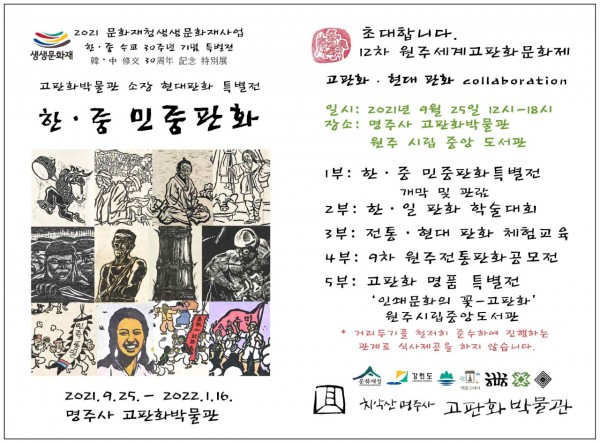 생생문화재
2021 문화재청생생문화재사업
한·중 수교 30주년 기념 특별전
韓·中 修交 30周年 記念 特別展
고판화박물관 소장 현대판화 특별전
한·중 민중판화
2021.9.25.- 2022.1.16.
명주사 고판화박물관
초대합니다.
12차 원주세계고판화문화제
고판화·현대 판화 collaboration
일시: 2021년 9월 25일 12시-18시
장소: 명주사 고판화박물관
원주 시립 중앙 도서관
1부: 한·중 민중판화특별전
개막 및 관람
2부: 한·일 판화 학술대회
3부: 전통·현대 판화 체험교육
4부: 9차 원주전통판화공모전
5부: 고판화 명품 특별전
'인쇄문화의 꽃-고판화'
원주시립중앙도서관
* 거리두기를 철저히 준수하여 진행하는
관계로 식사제공을 하지 않습니다.
문화재청
강원도
치악산 명주사 고판화박물관